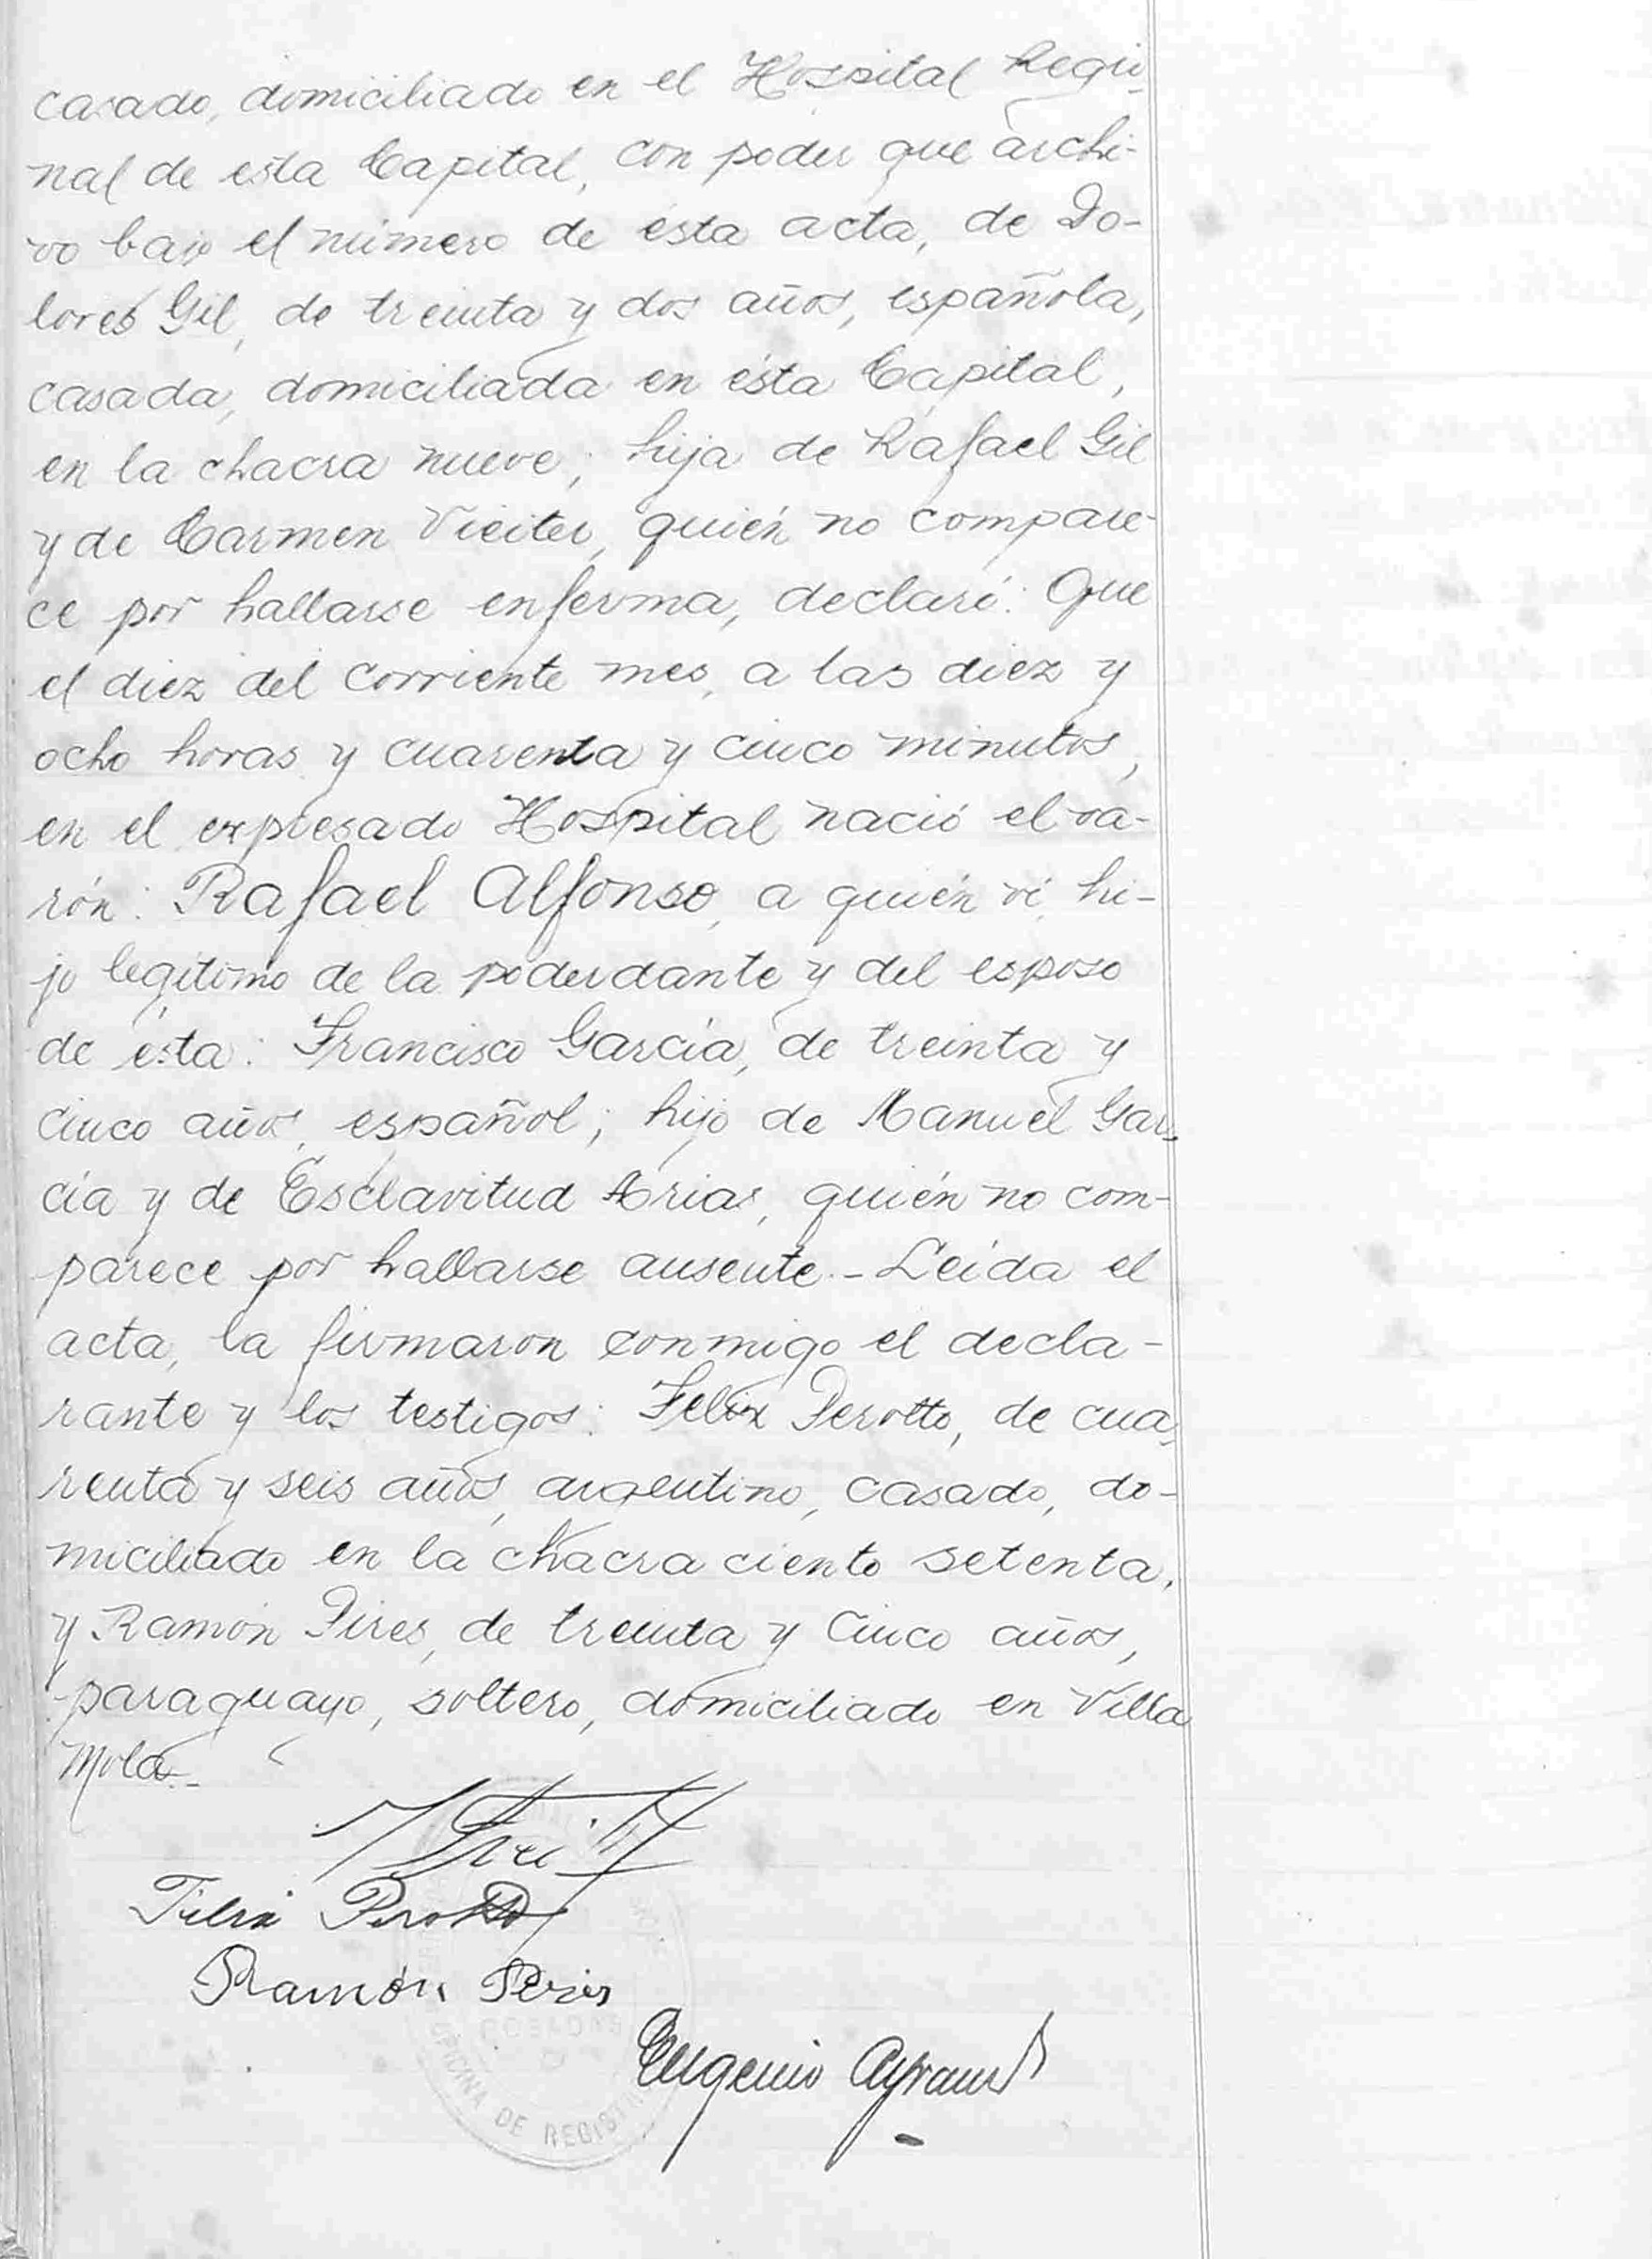 casado, domiciliado en el Hospital Regio-
nal de esta Capital, con poder que archi-
vo bajo el número de ésta acta, de Do-
lores Gil, de treinta y dos años, española,
casada, domiciliada en ésta Capital,
en la chacra nueve; hija de Rafael Gil
y de Carmen Vieites, quién no compare-
ce por hallarse enferma, declaró: Que
el diez del corriente mes, a las diez y
ocho horas y cuarenta y cinco minutos,
en el expresado Hospital nació el va-
rón: Rafael Alfonso, a quién ví, hi-
jo legítimo de la poderdante y del esposo
de ésta: Francisco García, de treinta y
cinco años, español; hijo de Manuel Gar-
cía y de Esclavitud Arias, quién no com-
parece por hallarse ausente.- Leída el
acta, la firmaron conmigo el decla-
rante y los testigos: Felix Perotto, de cua-
renta y seis años, argentino, casado, do-
miciliado en la chacra ciento setenta,
y Ramón Pires, de treinta y cinco años,
paraguayo, soltero, domiciliado en Villa
Mola.-
Felix Perotto
Ramón Peris
POSADAS
Eugenio
OFICINA DE REGIST